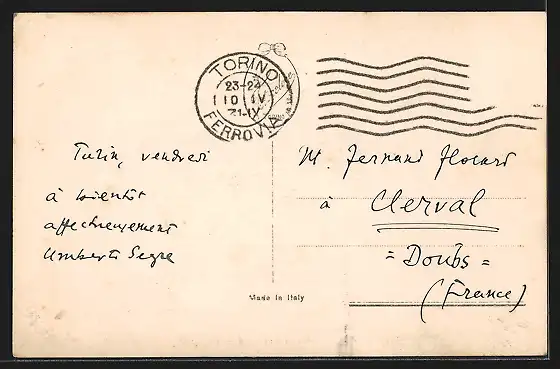 TORINO
23-24
10 IV
31-IX
FERROVIA
Turin, vendredi
à bientôt
affectueusement
Umberto Segre
M. Fernand Flocard
à Clerval
= Doubs =
(France)
Made in Italy